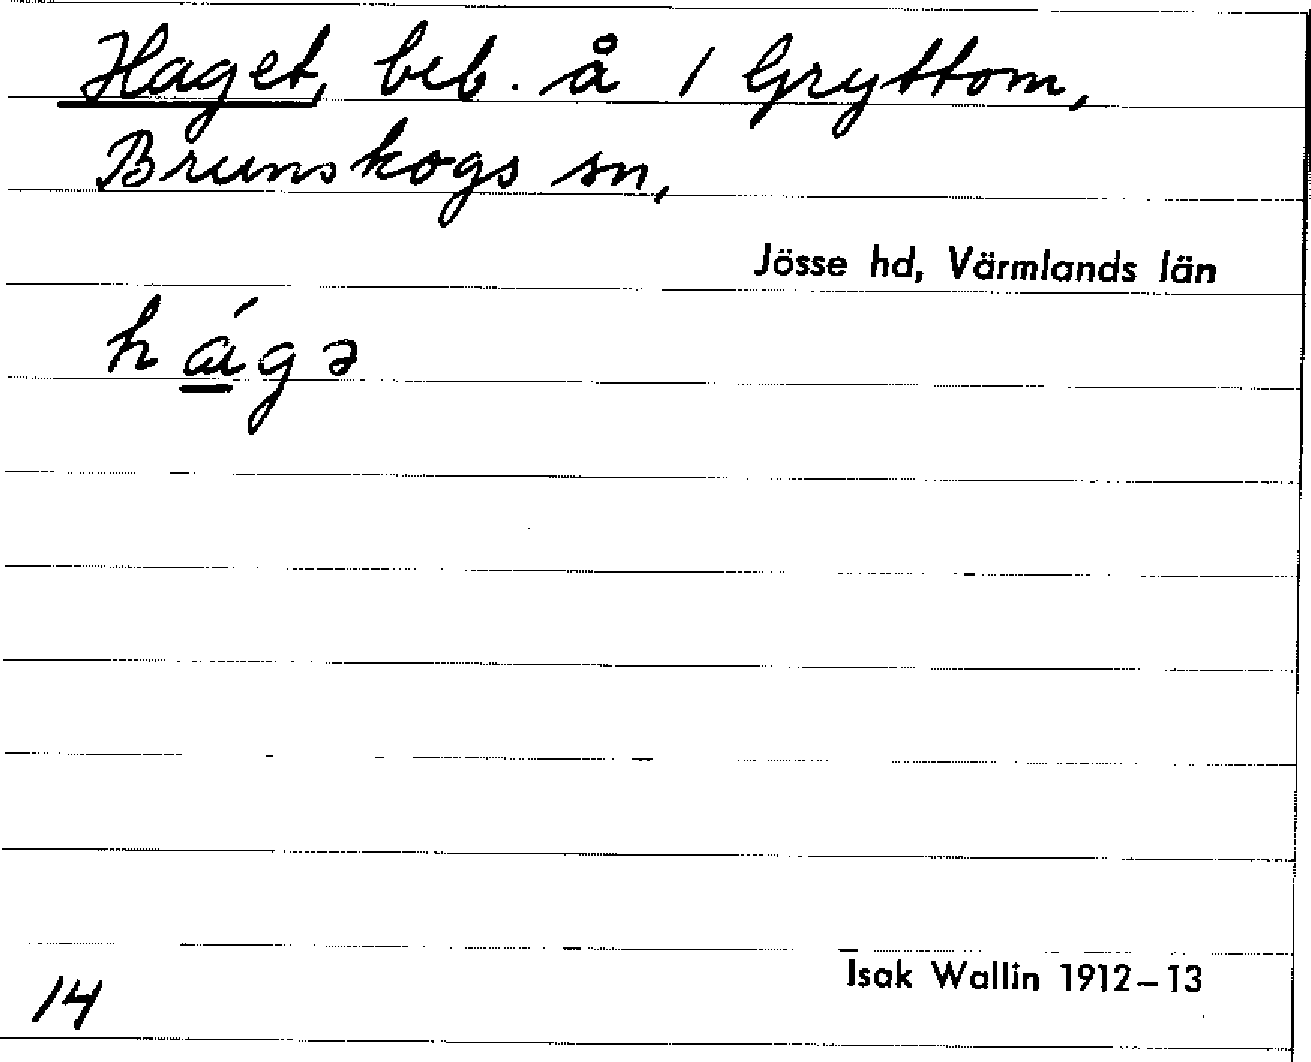 Haget, beb. å 1 Gryttom,
Brunskogs sn,
Jösse hd, Värmlands län
hágə
Isak Wallin 1912–13
14